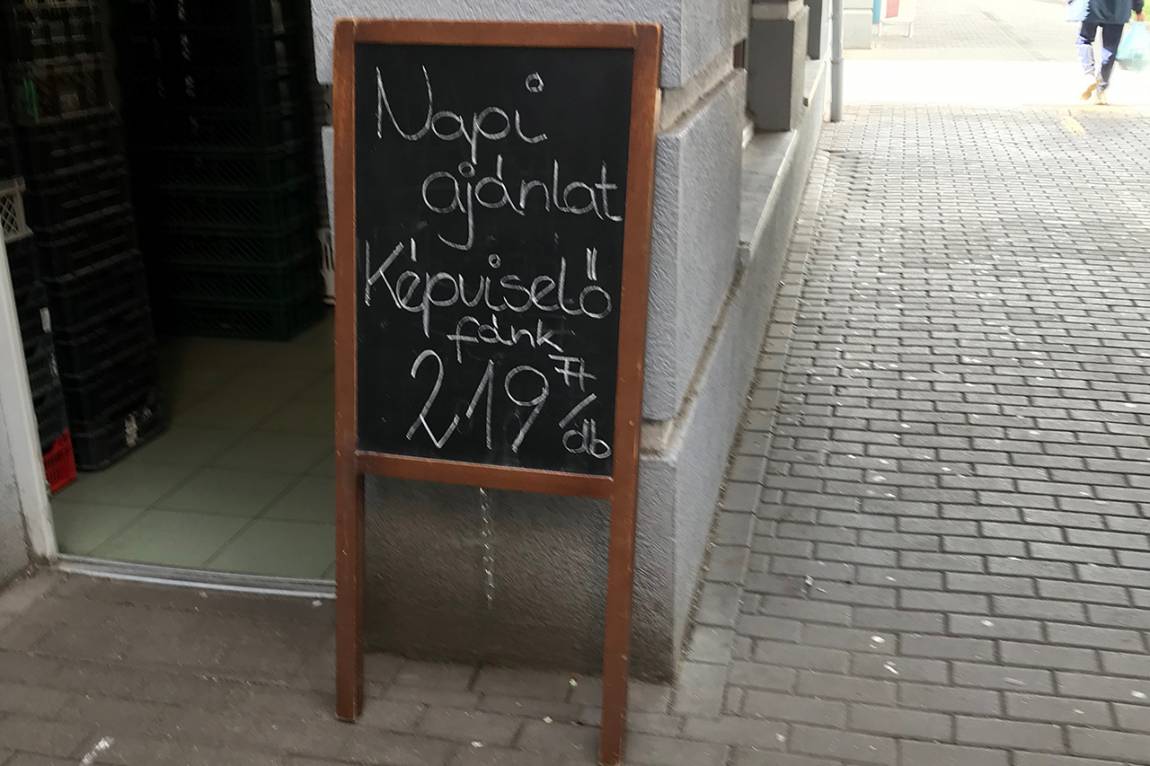 Napi
ajánlat
Képviselő
fánk
219 Ft/db